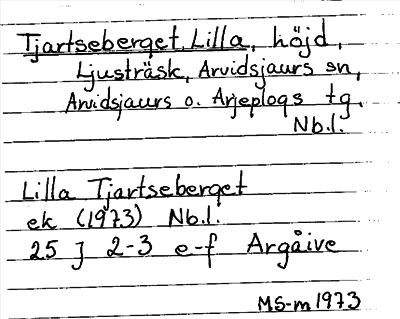 Tjartseberget, Lilla, höjd,
Ljusträsk, Arvidsjaurs sn,
Arvidsjaurs o. Arjeplogs tg.
Nb.l.
Lilla Tjartseberget
ek (1973) Nb.l.
25 J 2-3 e-f Argåive
MS-m 1973